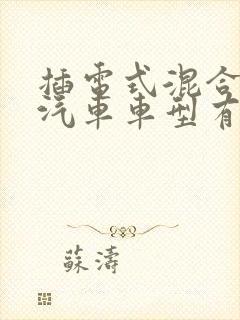 插電式混合
汽車車型有
蘇濤